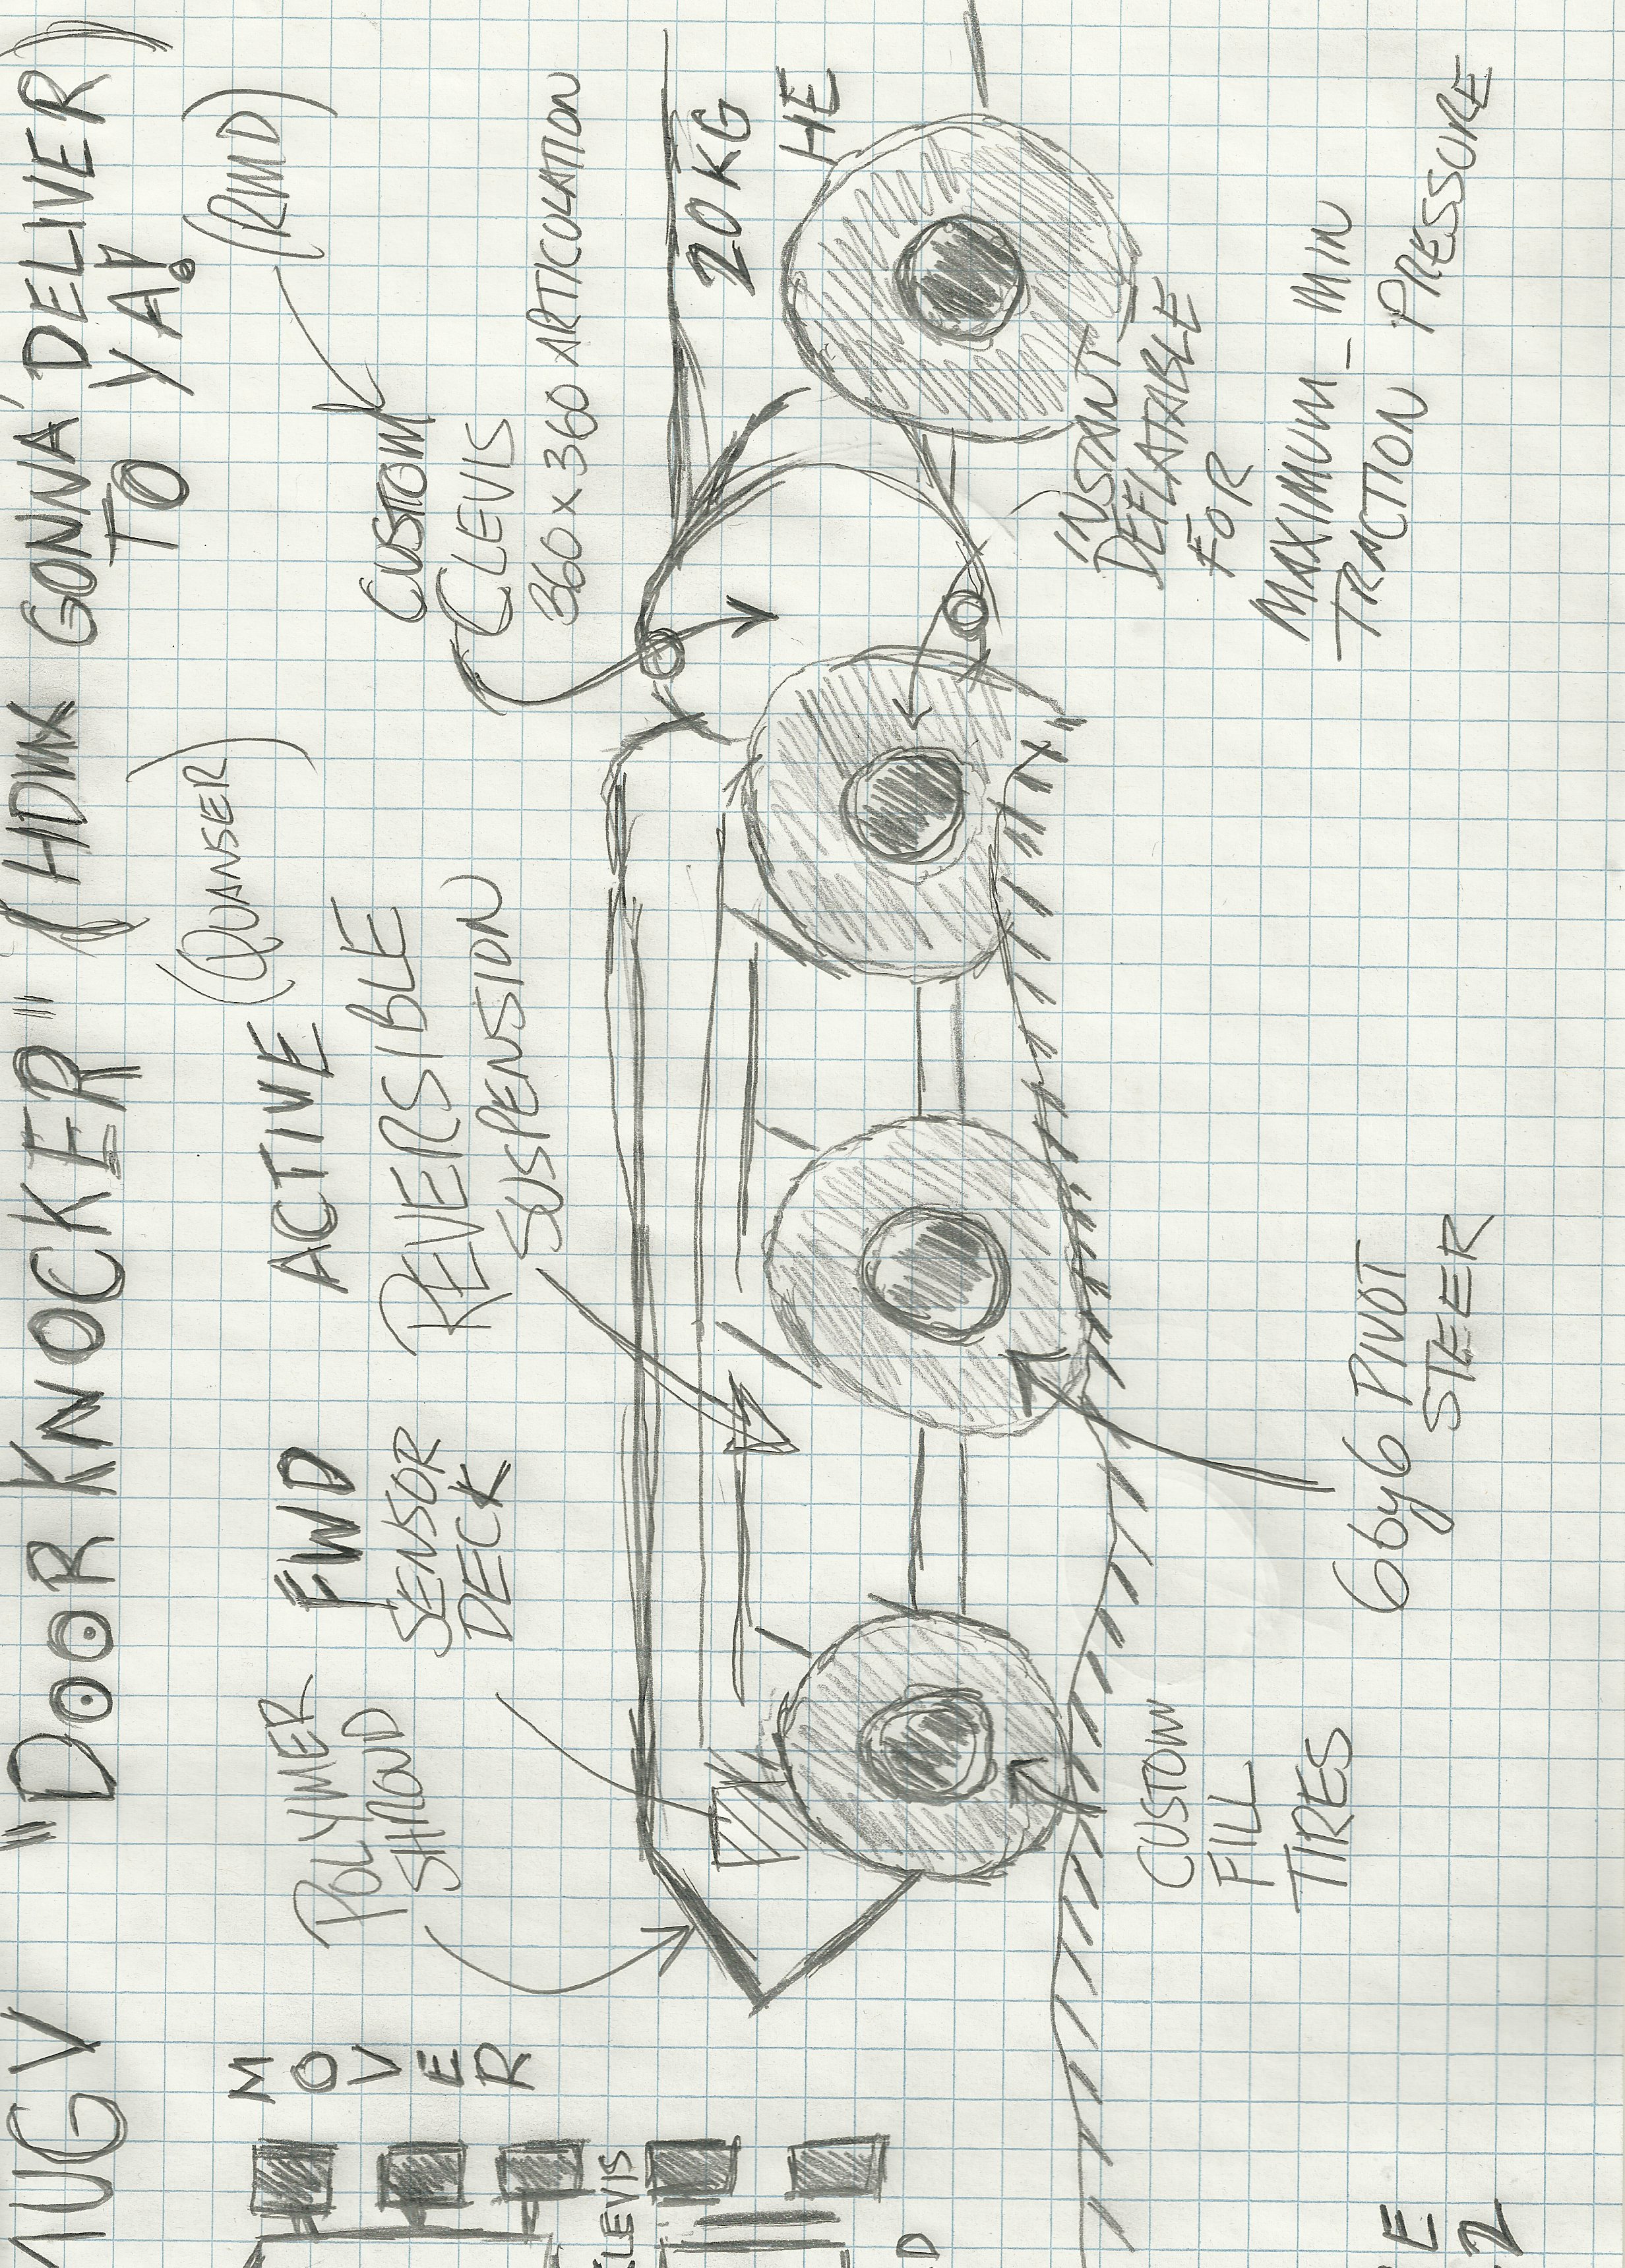 MUGV "DOOR KNOCKER" (HDWX GONNA' DELIVER
TO YA!)
(QUANSER)
(RMD)
MOVER
POLYMER
SHROUD
FWD
SENSOR
DECK
ACTIVE
REVERSIBLE
SUSPENSION
CUSTOM
CLEVIS
360 x 360 ARTICULATION
20 KG
HE
CLEVIS
D
CUSTOM
FILL
TIRES
6by6 PIVOT
STEER
INSTANT
DEFLATABLE
FOR
MAXIMUM - MIN
TRACTION PRESSURE
E
2